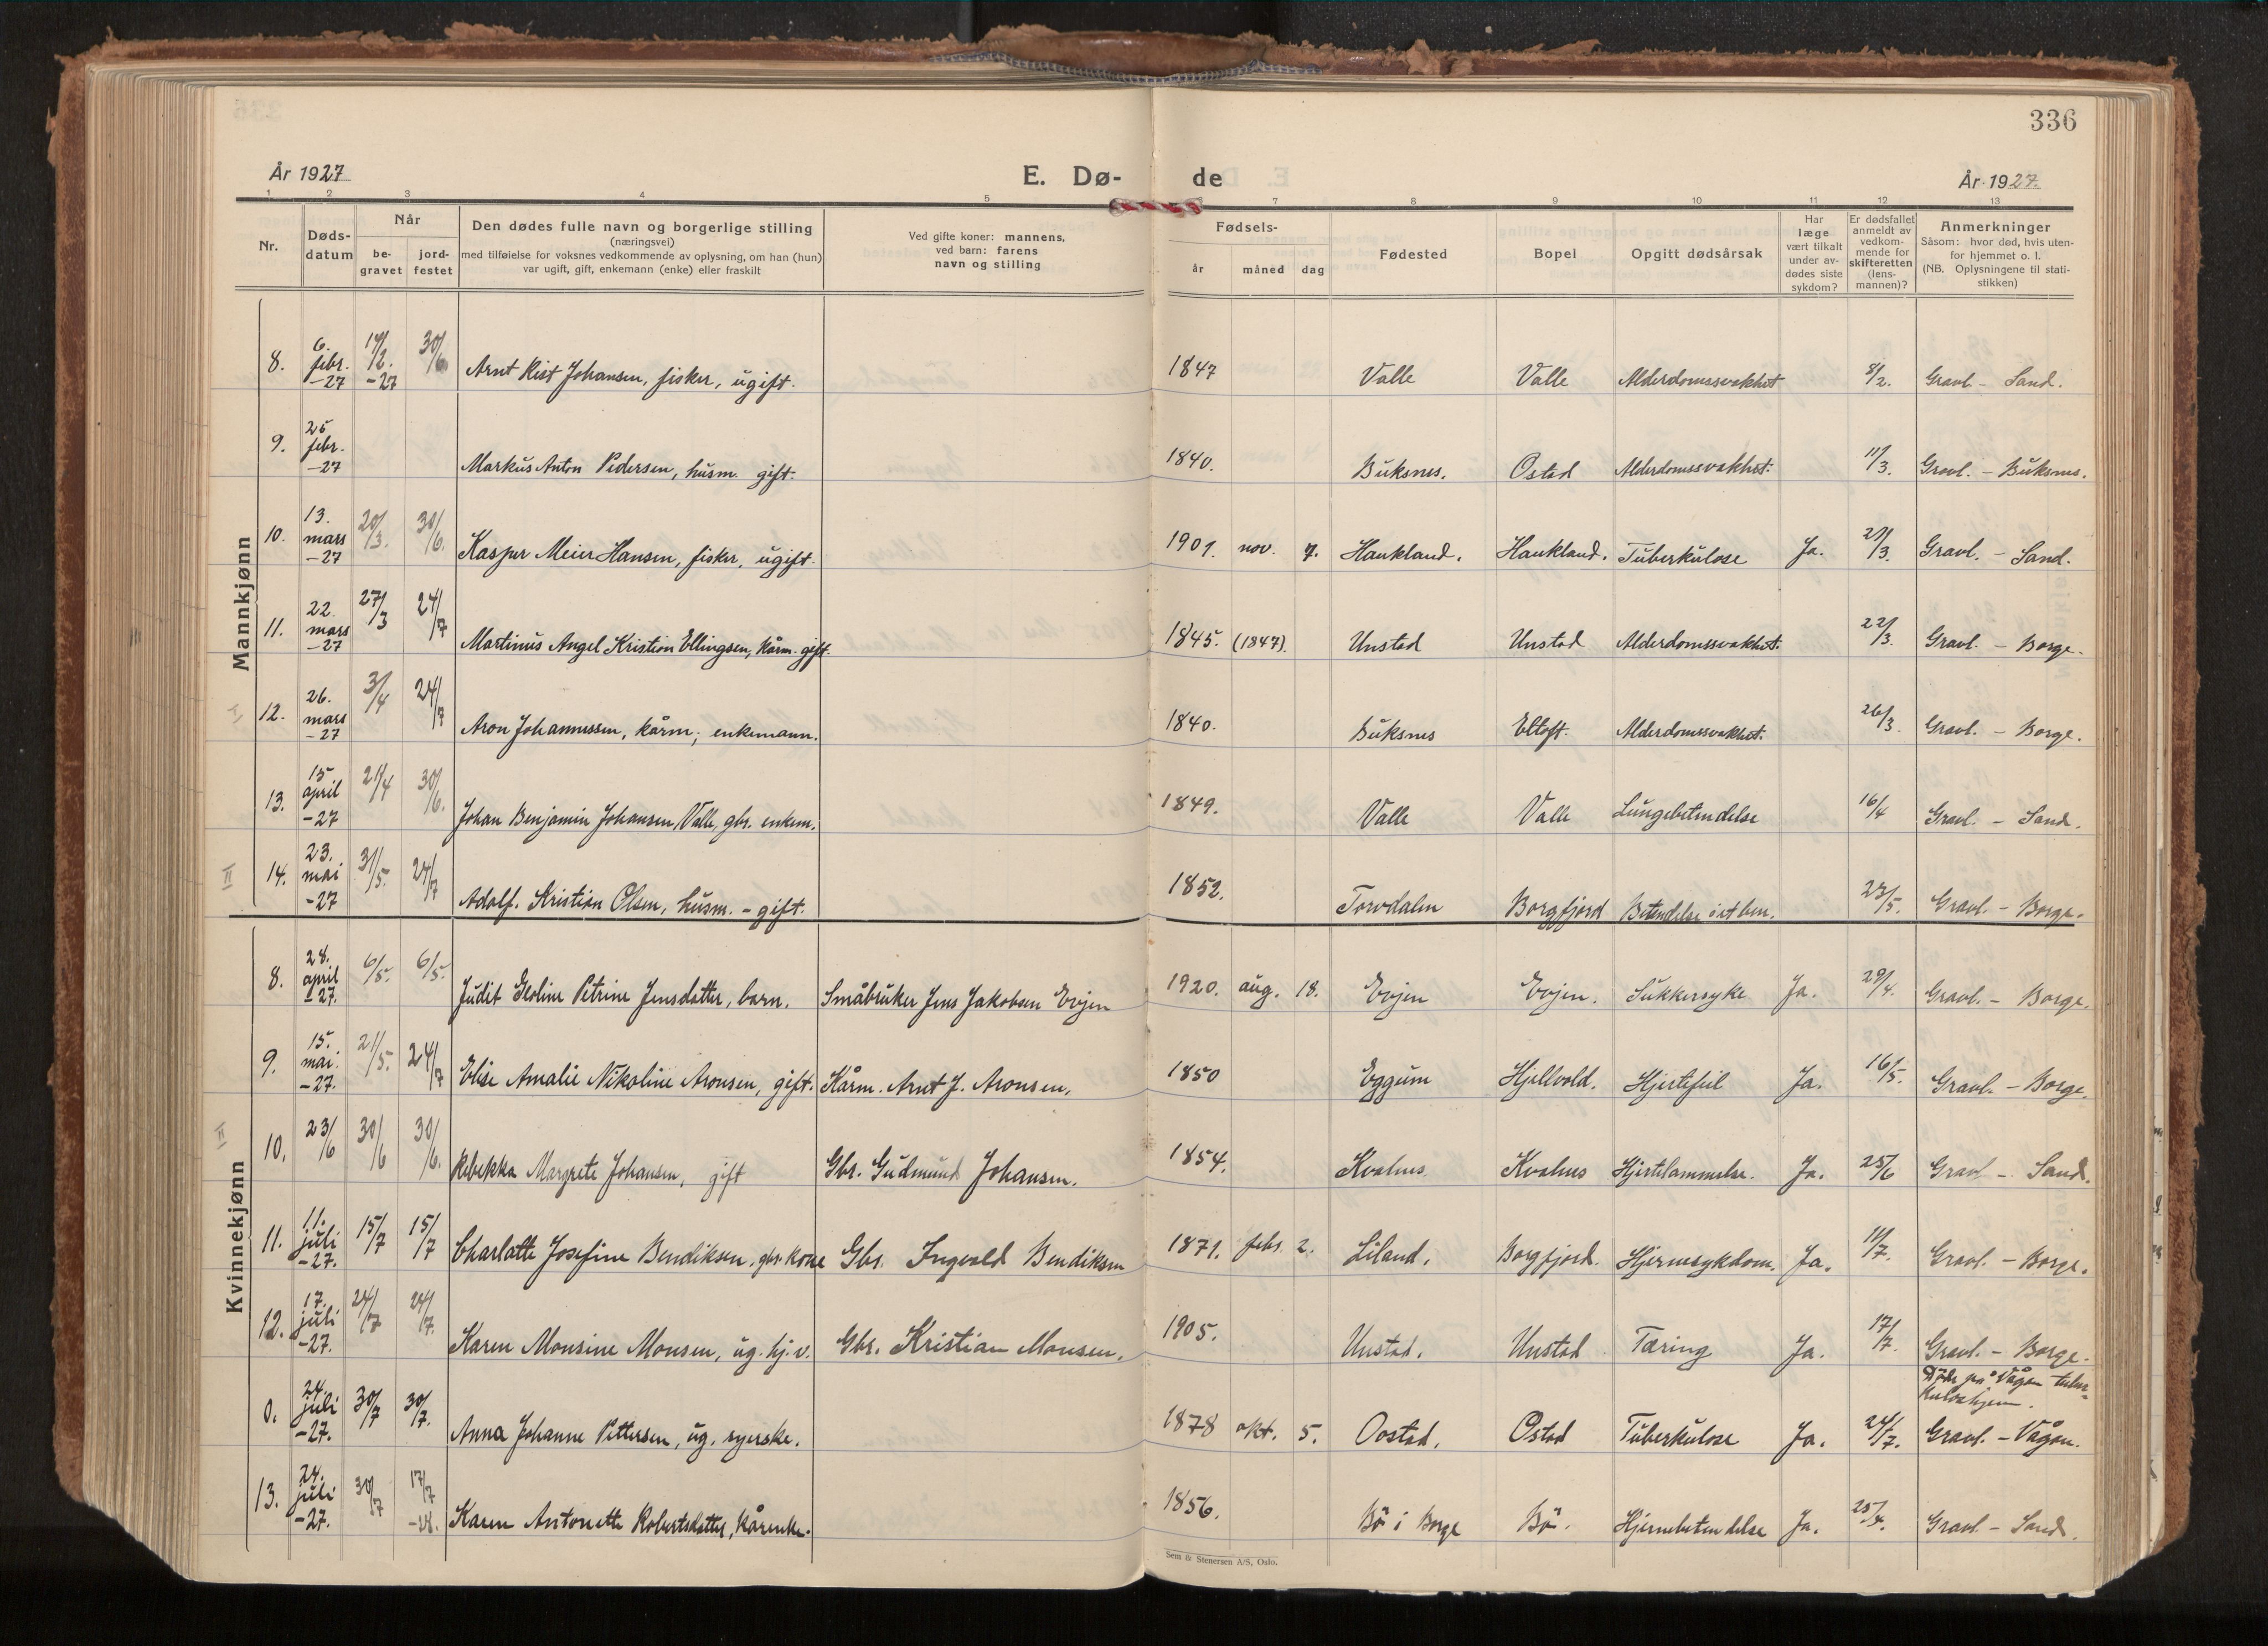 336
År 1927
E. Dø-
de
År 1927.
1 2 3 4 5 6 7 8 9 10 11 12 13
Nr.
Døds-
datum
Når
be-
gravet
jord-
festet
Den dødes fulle navn og borgerlige stilling
(næringsvei)
med tilføielse for voksnes vedkommende av oplysning, om han (hun)
var ugift, gift, enkemann (enke) eller fraskilt
Ved gifte koner: mannens,
ved barn: farens
navn og stilling
Fødsels-
år måned dag
Fødested
Bopel
Opgitt dødsårsak
Har
læge
vært tilkalt
under av-
dødes siste
sykdom?
Er dødsfallet
anmeldt av
vedkom-
mende for
skifteretten
(lens-
mannen)?
Anmerkninger
Såsom: hvor død, hvis uten-
for hjemmet o. l.
(NB. Oplysningene til stati-
stikken)
Mannkjønn
8. 6. febr. -27 30/6 Arnt Kist Johansen, fisker, ugift. 1847 Valle Valle Alderdomssvakhet 8/2. Gravl. - Sand.
9. 25 febr. -27 Markus Anton Pedersen, husm. gift. 1840. Buksnes. Ostad Alderdomssvakhet. 11/3. Gravl. - Buksnes.
10. 13. mars -27 20/3. 30/6. Kaspar Meier Hansen, fisker, ugift. 1901. nov. 7. Haukland. Haukland. Tuberkulose Ja. 29/3. Gravl. - Sand.
11. 22. mars -27 27/3 24/7 Martinus Angel Kristian Ellingsen, kårm. gift. 1845. (1847). Unstad Unstad Alderdomssvakhet. 22/3. Gravl. - Borge.
12. 26. mars -27 3/4 24/7 Aron Johannessen, kårm; enkemann. 1840. Buksnes Eltoft. Alderdomssvakhet. 26/3. Gravl. - Borge.
13. 15 april -27 21/4 30/6. Johan Benjamin Johansen, Valle, gbr. enkem. 1849. Valle Valle Lungebetendelse 16/4 Gravl. - Sand.
II 14. 23. mai -27 31/5. 24/7 Adolf. Kristian Olsen, husm. - gift. 1852. Torvdalen Borgfjord Betendelse i et ben. 23/5. Gravl. - Borge.
Kvinnekjønn
8. 28. april -27. 6/5. 6/5. Judit Petrine Jensdatter, barn. Småbruker Jens Jakobsen Evjen 1920. aug. 18. Evjen Evjen. Sukkersyke Ja. 29/4. Gravl. - Borge.
9. 15. mai. -27. 21/5. 24/7 Elise Amalie Nikoline Aronsen, gift. Kårm. Arnt J. Aronsen. 1850 Eggum Hjellvold. Hjertefeil Ja. 16/5. Gravl. - Borge.
10. 23/6 30/6 30/6. Rebekka Margrete Johansen, gift Gbr. Gudmund Johansen. 1854. Kvalnes. Kvalnes Hjertelammelse. Ja. 25/6 Gravl - Sand.
11. 11. juli -27. 15/7 15/7 Charlotte Josefine Bendiksen, gbr. kone Gbr. Ingvald Bendiksen 1871. febr. 2. Liland. Borgfjord. Hjernesykdom. Ja. 11/7. Gravl. - Borge.
12. 17. juli -27. 24/7 24/7. Karen Monsine Monsen, ug. hj. v. Gbr. Kristian Monsen. 1905. Unstad. Unstad Tæring Ja. 17/7. Gravl. - Borge.
0. 24. juli -27. 30/7 30/7. Anna Johanne Pettersen, ug. syerske. 1878 okt. 5. Oostad. Ostad Tuberkulose Ja. 24/7. Døde på Vågan tuber-
kulosehjem.
Gravl. - Vågan.
13. 24. juli -27. 30/7 17/7 -28. Karen Antonette Robertsdatter, kårenke. 1856. Bö i Borge Bö. Hjernebetendelse Ja. Gravl - Sand.
Sem & Stenersen A/S, Oslo.